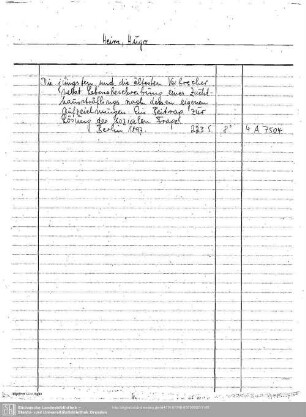 Heim, Hugo
Die jüngsten und die ältesten Verbrecher
nebst Lebensbeschreibung eines Zucht-
haussträflings nach dessen eigenen
Aufzeichnungen Ein Beitrag zur
Lösung des sozialen Frage
Berlin 1897. 223 S 8° 4 A 7504